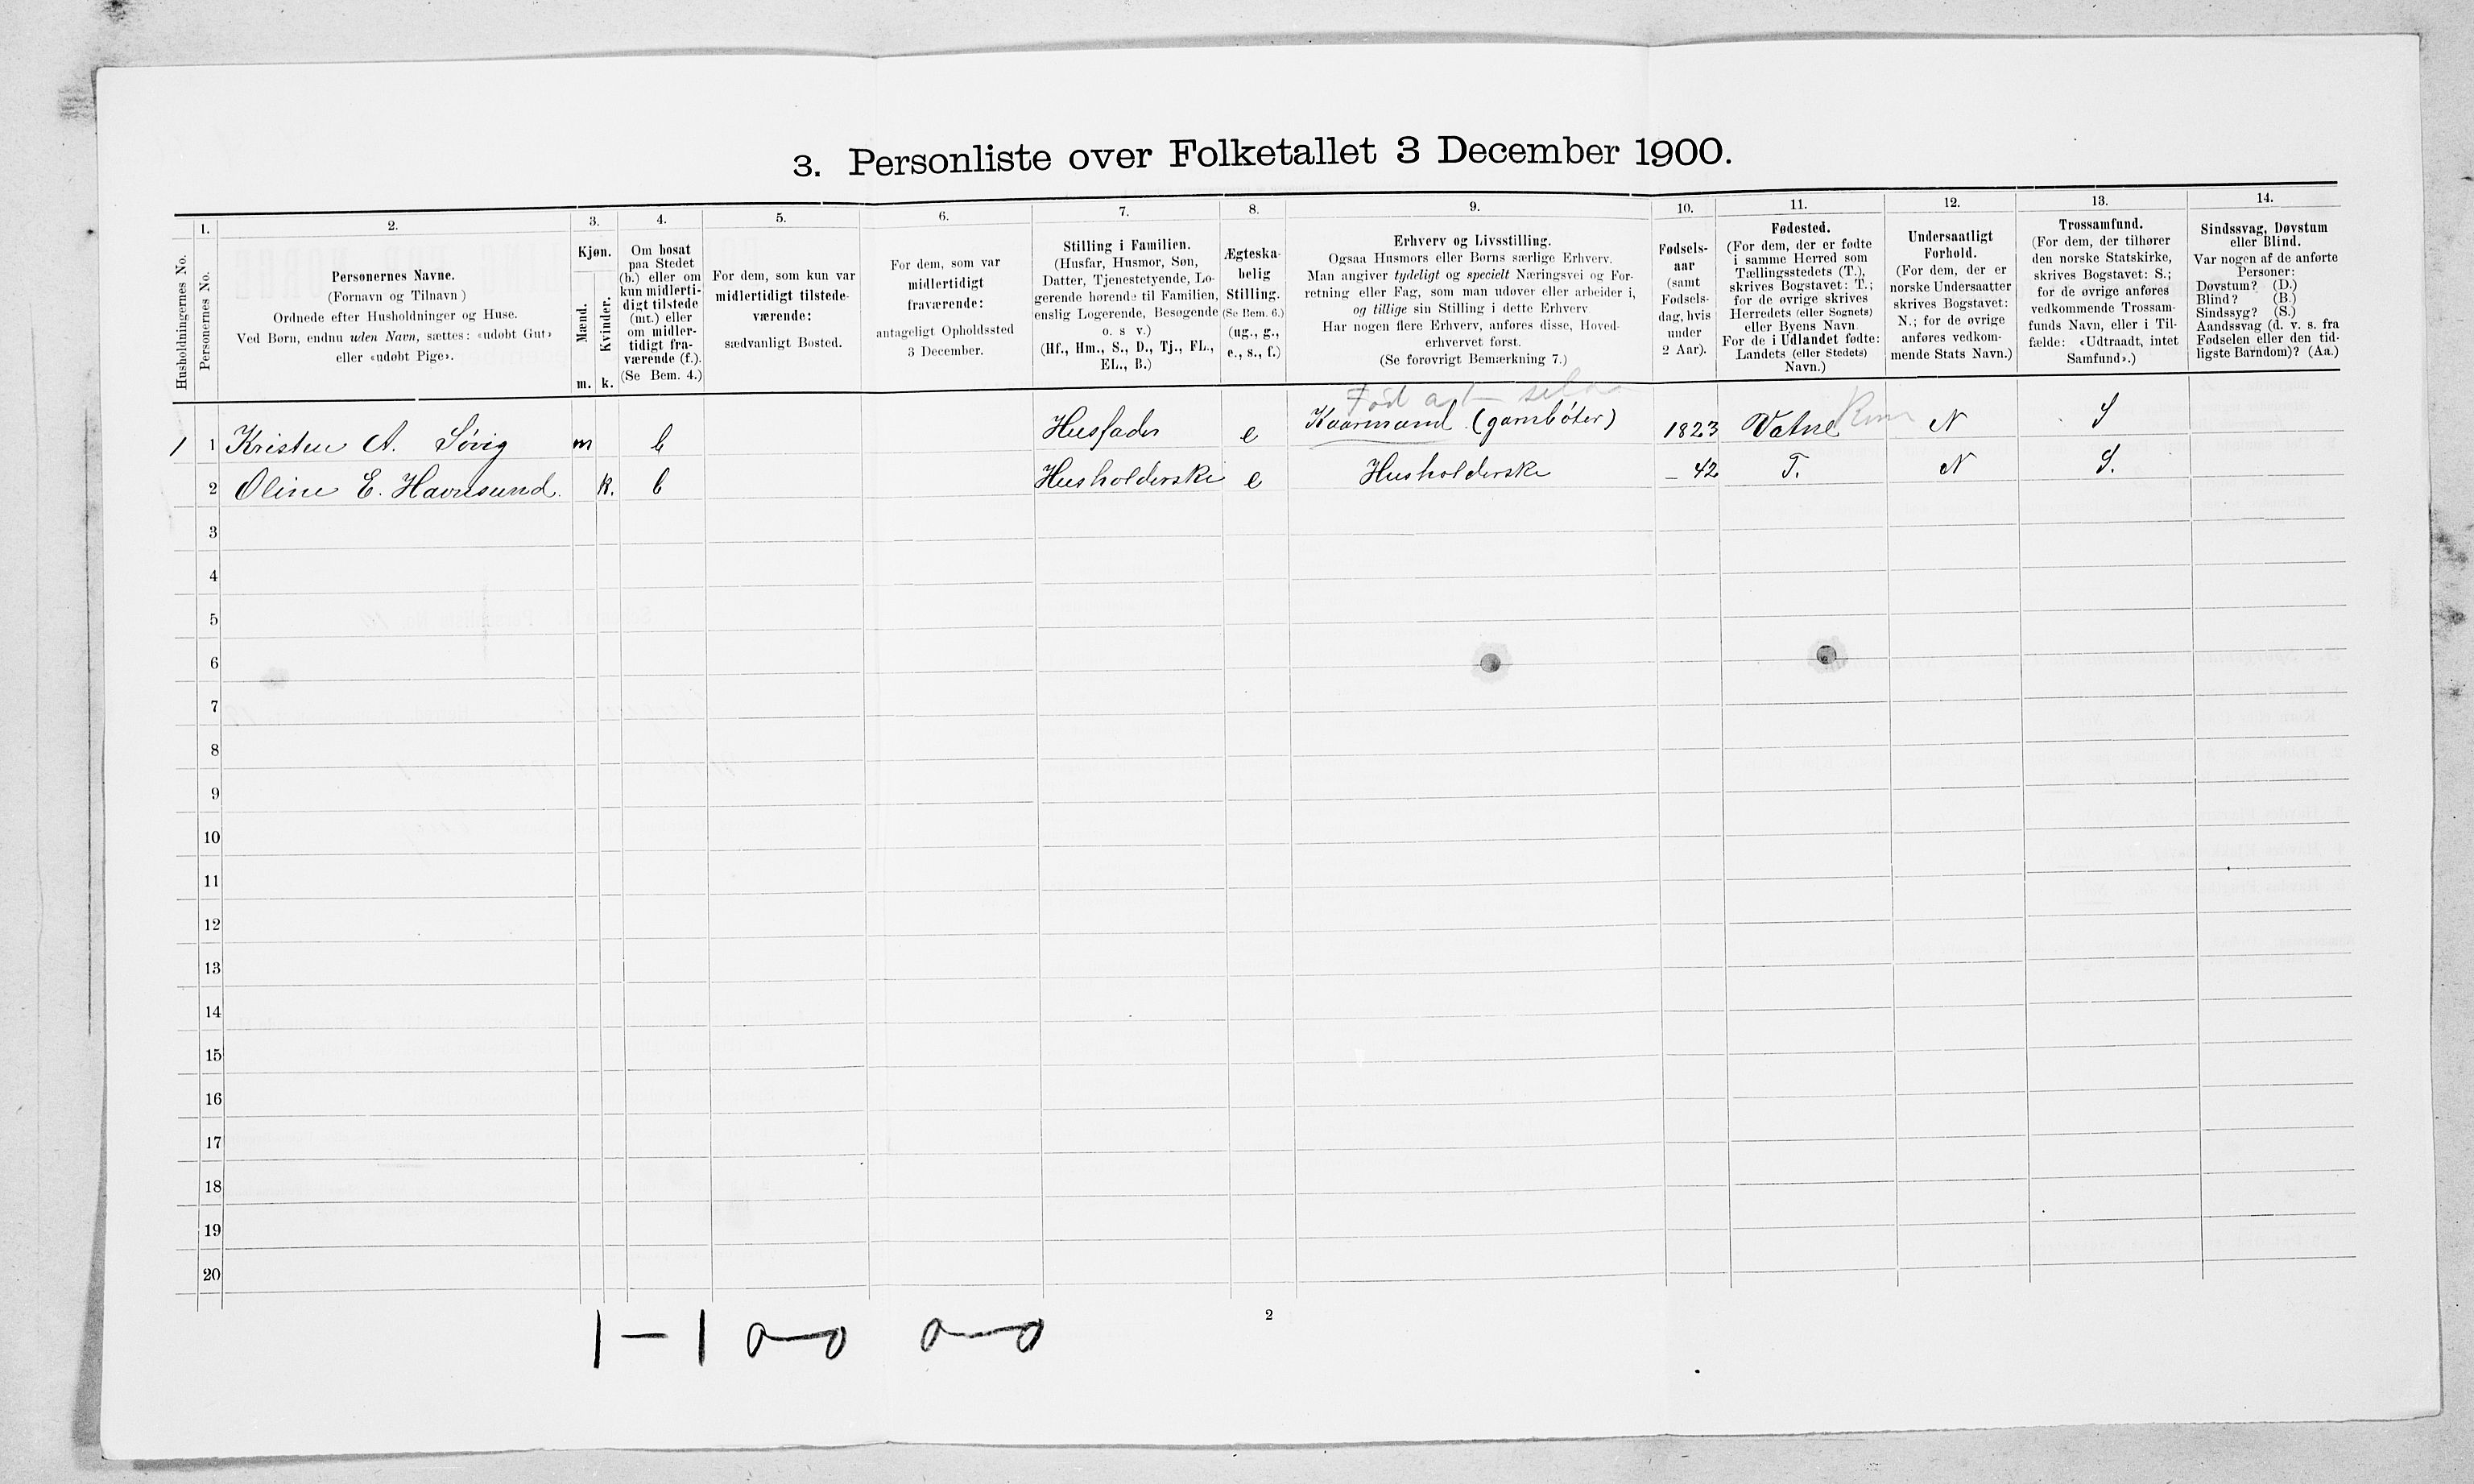 3. Personliste over Folketallet 3 December 1900.
Husholdningernes No.
1.
Personernes No.
2.
Personernes Navne.
(Fornavn og Tilnavn)
Ordnede efter Husholdninger og Huse.
Ved Børn, endnu uden Navn, sættes: «udøbt Gut»
eller «udøbt Pige».
3.
Kjøn.
Mænd.
Kvinder.
m. k.
4.
Om bosat
paa Stedet
(b.) eller om
kun midlerti-
digt tilstede
(mt.) eller
om midler-
tidigt fra-
værende (f.).
(Se Bem. 4.)
5.
For dem, som kun var
midlertidigt tilstede-
værende:
sædvanligt Bosted.
6.
For dem, som var
midlertidigt
fraværende:
antageligt Opholdssted
3 December.
7.
Stilling i Familien.
(Husfar, Husmor, Søn,
Datter, Tjenestetyende, Lo-
gerende hørende til Familien,
enslig Logerende, Besøgende
o. s v.)
(Hf., Hm., S., D., Tj., FL.,
EL., B.)
8.
Ægteska-
belig
Stilling.
(Se Bem. 6.)
(ug., g.,
e., s., f.)
9.
Erhverv og Livsstilling.
Ogsaa Husmors eller Børns særlige Erhverv.
Man angiver tydeligt og specielt Næringsvei og For-
retning eller Fag, som man udøver eller arbeider i,
og tillige sin Stilling i dette Erhverv
Har nogen flere Erhverv, anføres disse, Hoved-
erhvervet først.
(Se forøvrigt Bemærkning 7.)
10.
Fødsels-
aar
(samt
Fødsels-
dag, hvis
under
2 Aar).
11.
Fødested.
(For dem, der er fødte
i samme Herred som
Tællingsstedets (T.),
skrives Bogstavet: T.;
for de øvrige skrives
Herredets (eller Sognets)
eller Byens Navn
For de i Udlandet fødte:
Landets (eller Stedets)
Navn.)
12.
Undersaatligt
Forhold.
(For dem, der er
norske Undersaatter
skrives Bogstavet:
N.; for de øvrige
anføres vedkom-
mende Stats Navn.)
13.
Trossamfund.
(For dem, der tilhører
den norske Statskirke,
skrives Bogstavet: S.;
for de øvrige anføres
vedkommende Trossam-
funds Navn, eller i Til-
fælde: «Udtraadt, intet
Samfund».)
14.
Sindssvag, Døvstum
eller Blind.
Var nogen af de anførte
Personer:
Døvstum? (D.)
Blind? (B.)
Sindssyg? (S.)
Aandssvag (d. v. s. fra
Fødselen eller den tid-
ligste Barndom)? (Aa.)
1 1 Kristen A. Søvig m b Husfader e Kaarmand (garnbøter) 1823 Vatne N S
2 Oline E. Havnsund. k. b Husholderske e Husholderske - 42 T. N S.
3
4
5
6
7
8
9
10
11
12
13
14
15
16
17
18
19
20
2
1 - 1 0-0 0-0